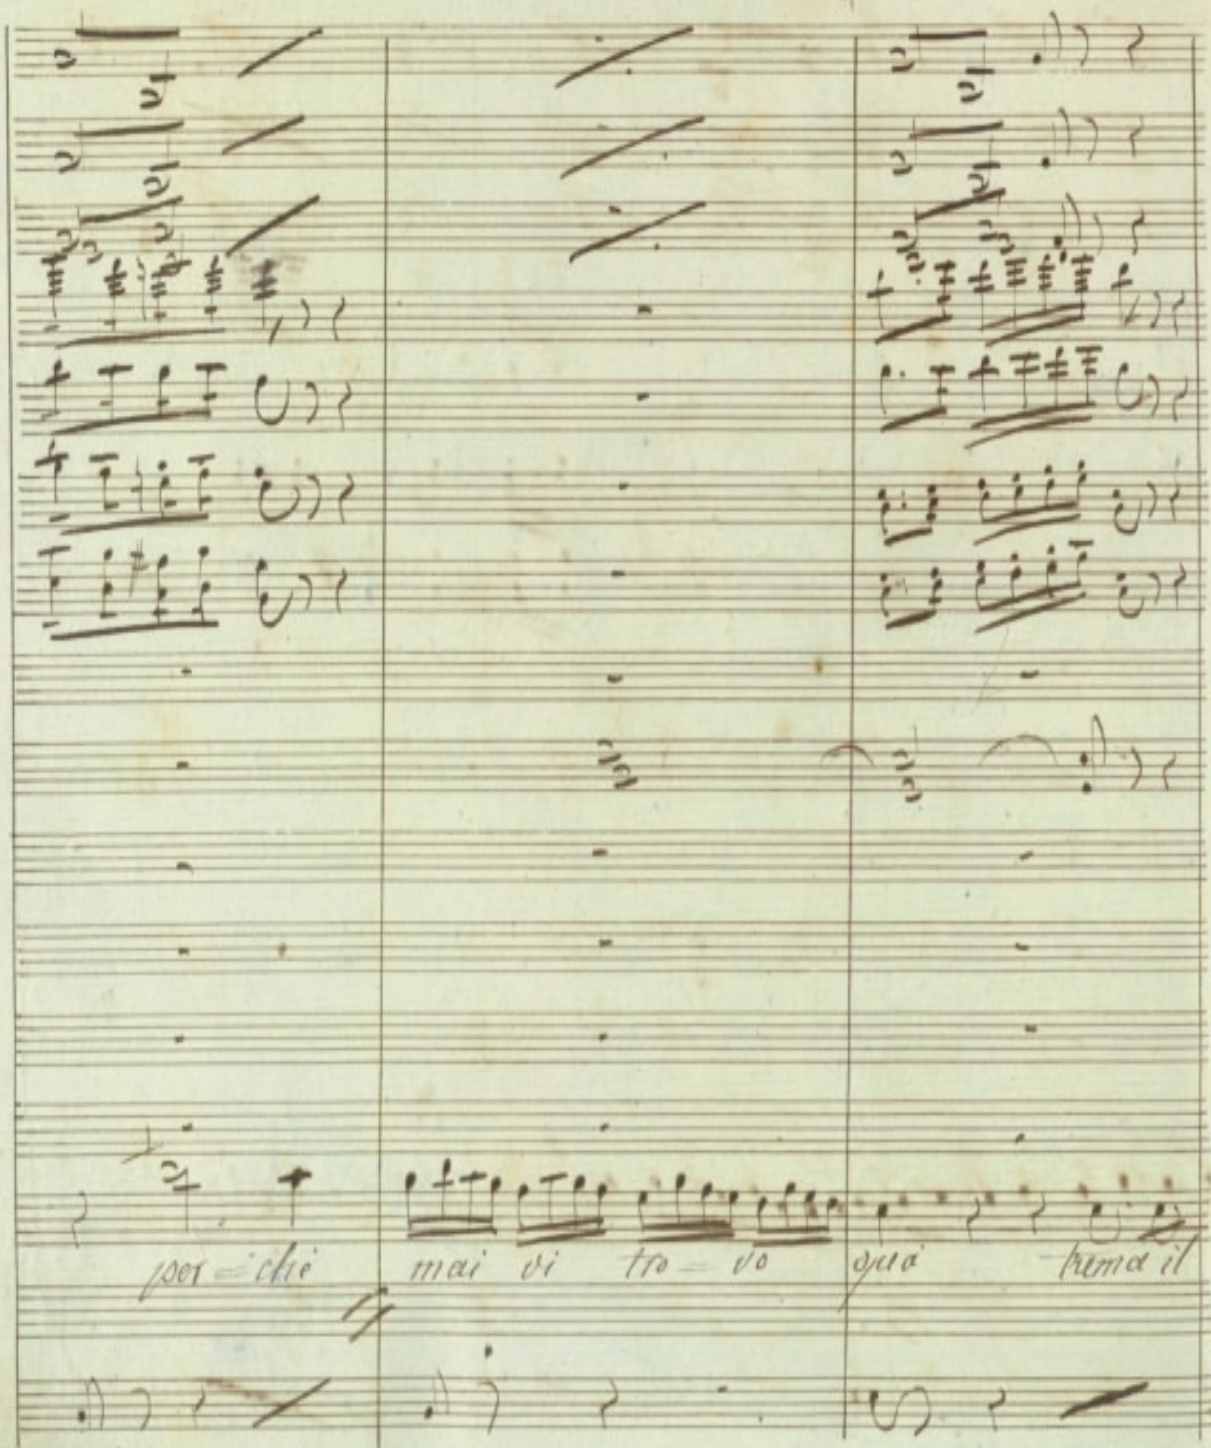 per=chè mai vi tro=vo quà trema il